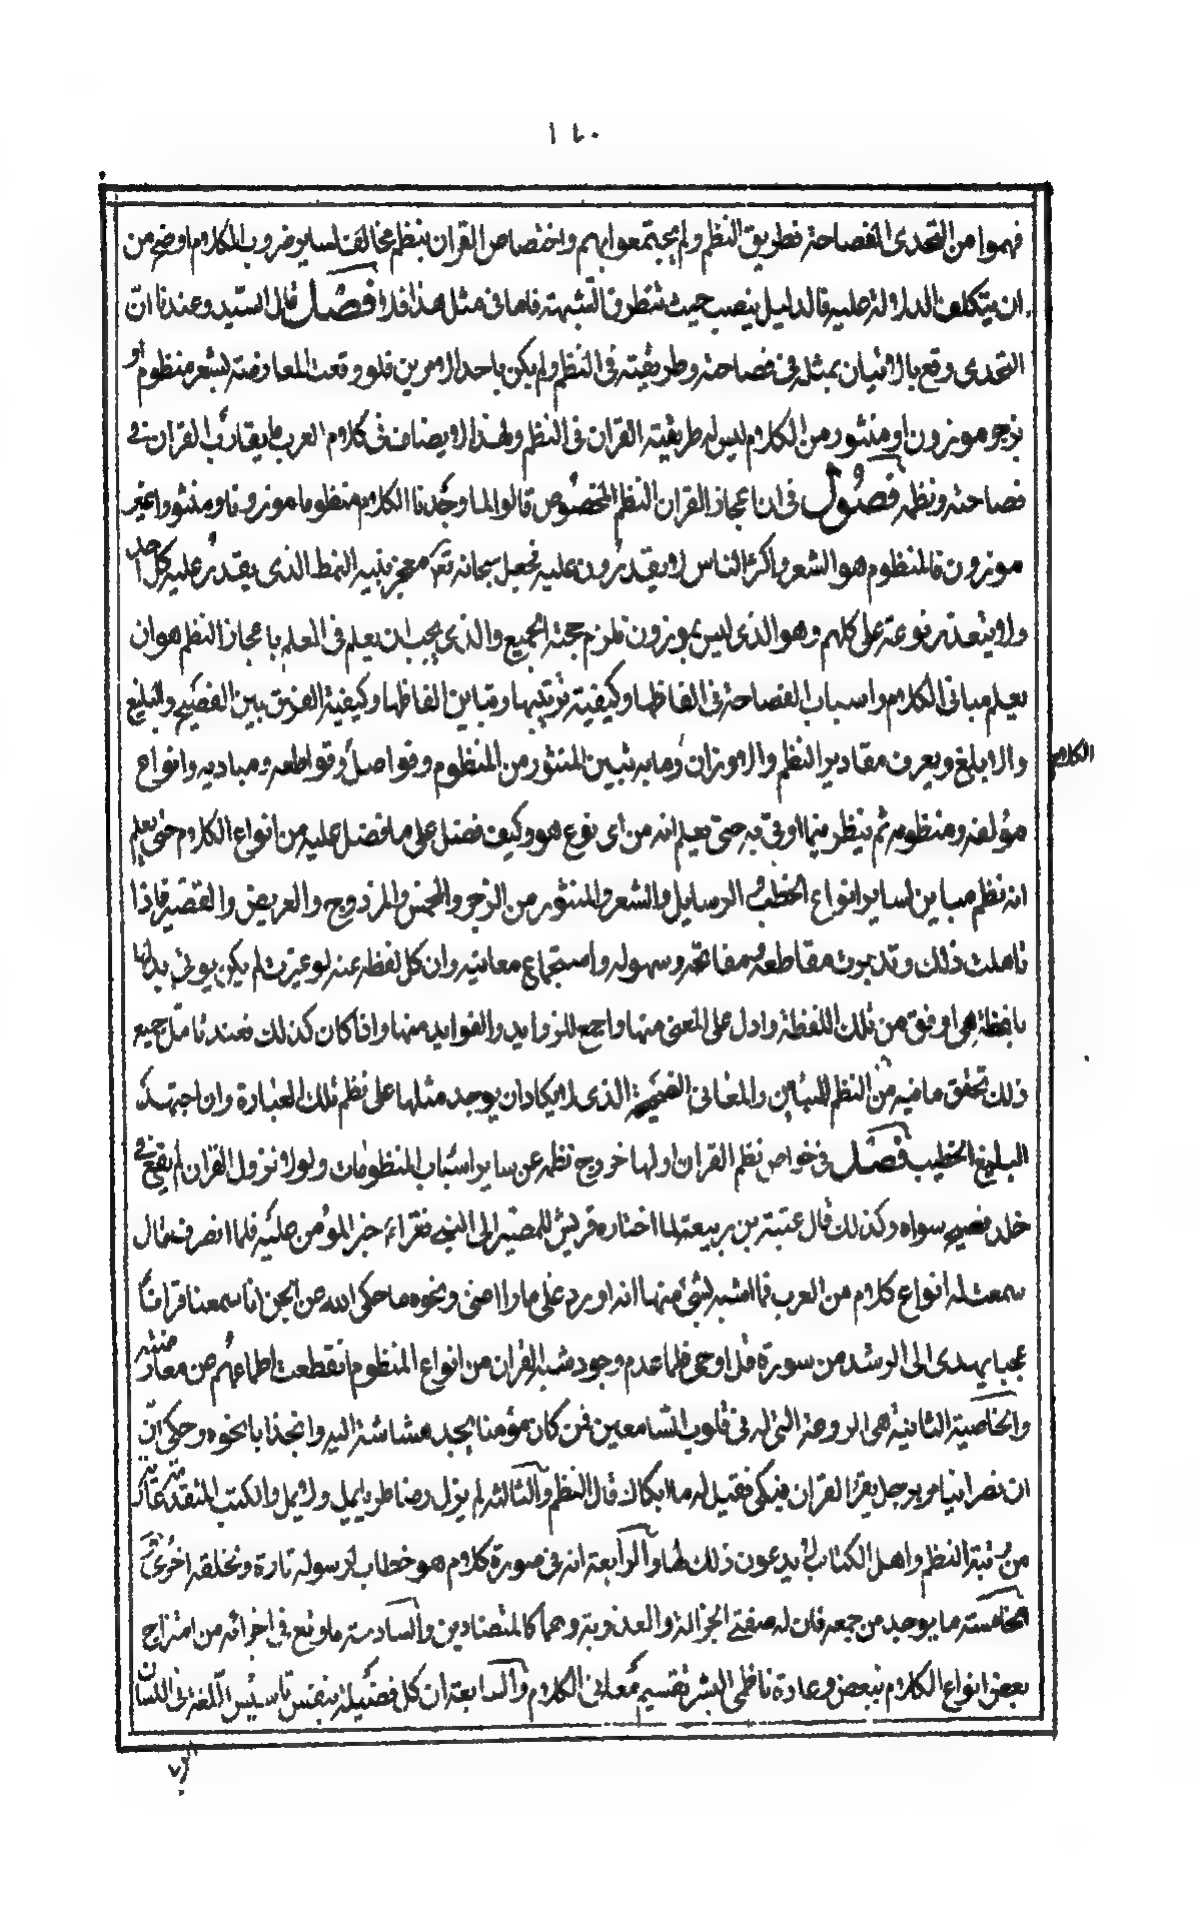 ١٤٠
فهموا من التحدى الفصاحة وطريق النظم ولم يجتمعوا بهم واختصاص القران بنظم مخالف لساير ضروب الكلام اوضح من
ان يتكلف الدلالة عليه فالدليل ينصب حيث تتطرق الشبهة فاما فى مثل هذا فلا فصل قال السيد وعندنا انّ
التحدى وقع بالاتيان بمثله فى فصاحته وطريقته فى النظم ولم يكن باحد الامرين فلو وقعت المعارضة بشعر منظوم او
برجز موزون او منثور من الكلام ليس له طريقة القران فى النظم ولهذا لا يضاف فى كلام العرب ما يقارب القران فى
فصاحته ونظمه فصول فى ان اعجاز القران النظم المخصوص قالوا لما وجدنا الكلام منظوما موزونا ومنثورا غير
موزون فالمنظوم هو الشعر واكثر الناس لا يقدرون عليه فجعل سبحانه تعم معجز نبيه النمط الذى يقدر عليه كل احد
ولا يتعذر نوعه على كلهم وهو الذى ليس بموزون فلزم حجته الجميع والذى يجب ان يعلم فى العلم باعجاز النظم هو ان
يعلم مبانى الكلام واسباب الفصاحة فى الفاظها وكيفية ترتيبها وتباين الفاظها وكيفية الفرق بين الفصيح والبليغ
والابلغ ويعرف مقادير النظم والاوزان وما به تبين المنثور من المنظوم وفواصل وقواطعه ومباديه وانواع
الكلام
مؤلفه ومنظومه ثم ينظر فيما اوتى به حتى يعلم انه من اى نوع هو وكيف فضل على ما فضل عليه من انواع الكلام حتى يعلم
انه نظم مباين لساير انواع الخطب و الرسايل والشعر والمنثور من الرجز والمخمس والمزدوج والعريض والقصير فاذا
تاملت ذلك وتدبرت مقاطعه ومفاتحه وسهوله واستجماع معانيه وان كل لفظة عنه لو غيرت لم يكن يوتى بدلها
بلفظة هى اوفق من تلك اللفظة وادل على المعنى منها واجمع للزوايد والفوايد منها واذا كان كذلك فعند تامل جميع
ذلك تحقق ما فيه من النظم المباين والمعانى الصحيحة الذى لا يكاد ان يوجد مثلها على نظم تلك العبارة وان اجتهد
البليغ الخطيب فصل فى خواص نظم القران اولها خروج نظمه عن ساير اسباب المنظومات ولولا نزول القران لم يقع فى
خلد فصيح سواه وكذلك قال عتبة بن ربيعة لما اختاره قريش للمصير الى النبى فقراء حم المؤمن عليه فلما انصرف فقال
سمعت له انواع كلام من العرب فما اشبه لشئ منها انه اورد على ما راعنى ونحوه ما حكى الله عن الجن انا سمعنا قرانا
عجبا يهدى الى الرشد من سورة قل اوحى فلما عدم وجود شبه القران من انواع المنظوم انقطعت اطماعهم عن معارضته
والخاصية الثانية هى الروعة التى له فى قلوب السامعين فمن كان مؤمنا يجد مشاشة اليه وانجذابا نحوه وحكى انّ
ان نصرانيا مر برجل يقرا القران فبكى فقيل له ما ابكاك قال النظم والثالثة لم يزل رضا طريا لا يمل ولا يمل والكتب المتقدمة عارية
من رتبة النظم واهل الكتاب لا يدعون ذلك لها والرابعة انه فى صورة كلام هو خطاب لرسوله تارة ولخلقه اخرى
الخامسة ما يوجد من جمعه فان له صفتى الجزالة والعذوبة وهما كالمتضادين والسادسة ما وقع فى اجزائه من امتزاج
بعض انواع الكلام ببعض وعادة ناطقى البشر تقسيم معانى الكلام والسابعة ان كل فضيلة بنفس تاسيس اللغة فى اللسان